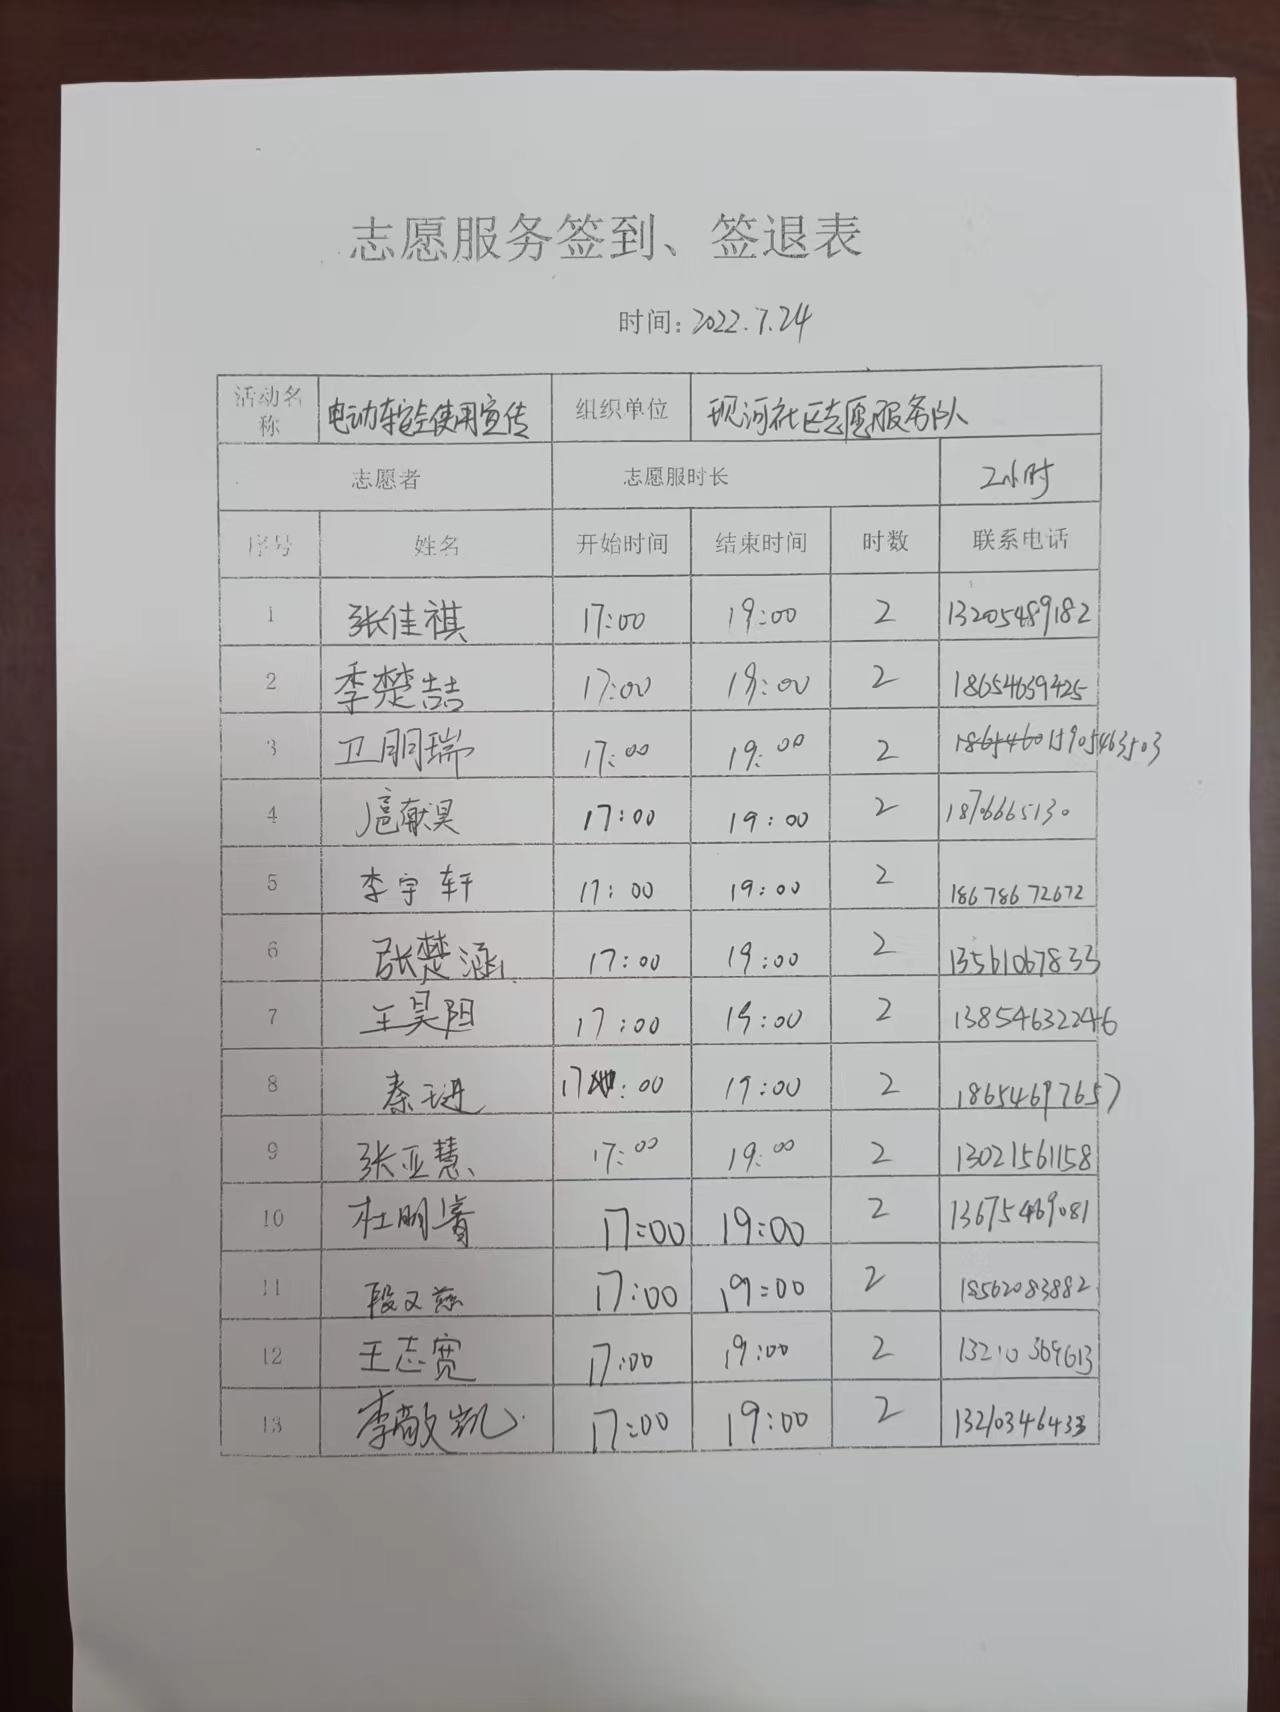 志愿服务签到、签退表
时间：2022.7.24
活动名称 电动车安全使用宣传 组织单位 现河社区志愿服务队
志愿者 志愿服时长 2小时
序号 姓名 开始时间 结束时间 时数 联系电话
1 张佳祺 17:00 19:00 2 13205489182
2 季楚喆 17:00 19:00 2 18654659425
3 卫朋瑞 17:00 19:00 2 15905463503
4 扈献昊 17:00 19:00 2 1876665130
5 李宇轩 17:00 19:00 2 18678672672
6 张楚涵 17:00 19:00 2 13561067833
7 王昊阳 17:00 19:00 2 13854632246
8 秦玉进 17:00 19:00 2 18654697657
9 张亚慧 17:00 19:00 2 13021561158
10 杜明睿 17:00 19:00 2 13675469081
11 段又慈 17:00 19:00 2 18562083882
12 王志宽 17:00 19:00 2 13210369613
13 李敬凯 17:00 19:00 2 13210346433